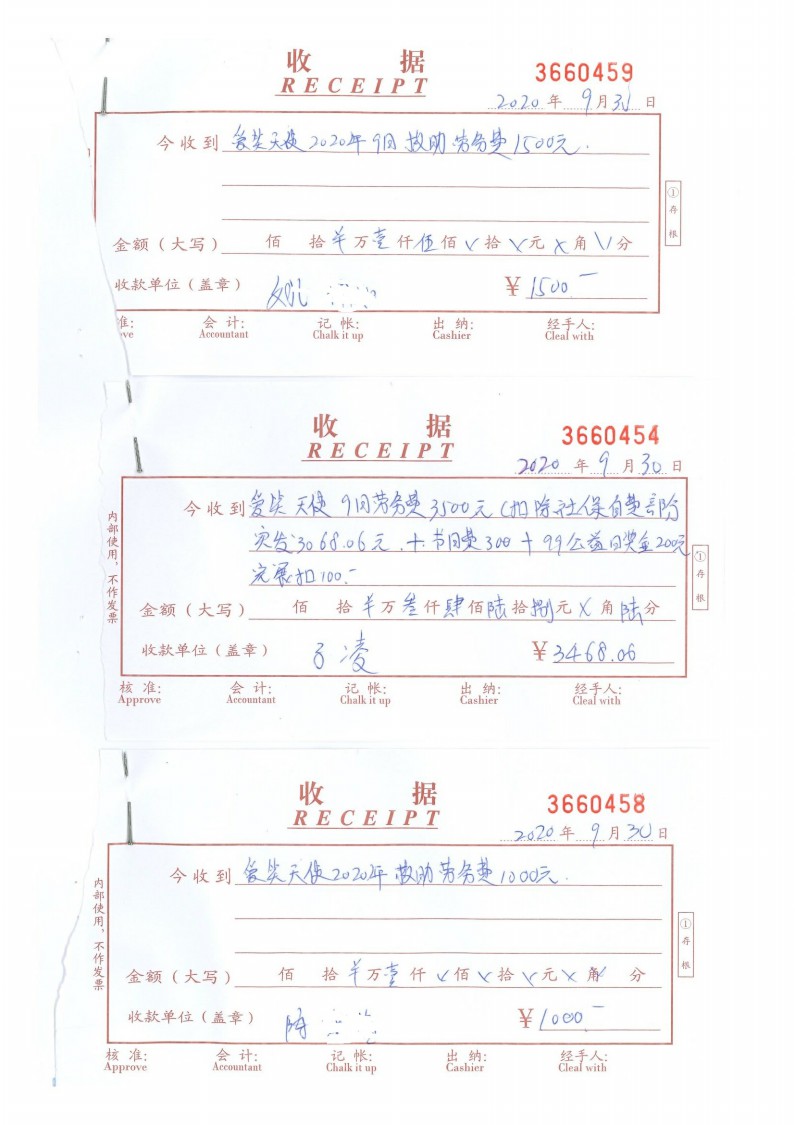 收 据
RECEIPT
3660459
2020 年 9 月 30 日
今收到 爱笑天使2020年9月救助劳务费1500元.
① 存根
金额（大写） 佰 拾 羊 万 壹 仟 伍 佰 拾 元 角 分
收款单位（盖章） 姚 ¥ 1500.—
准: 会计: 记帐: 出纳: 经手人:
ve Accountant Chalk it up Cashier Cleal with
收 据
RECEIPT
3660454
2020 年 9 月 30 日
内部使用，不作发票
今收到 爱笑天使 9月劳务费3500元（扣除社保自费部份
实发3068.06元.＋节日费300＋99公益日奖金200元
扣100.-
① 存根
金额（大写） 佰 拾 羊 万 叁 仟 肆 佰 陆 拾 捌 元 X 角 陆 分
收款单位（盖章） 凌 ¥ 3468.06
核准: 会计: 记帐: 出纳: 经手人:
Approve Accountant Chalk it up Cashier Cleal with
收 据
RECEIPT
3660458
2020 年 9 月 30 日
内部使用，不作发票
今收到 爱笑天使2020年 救助劳务费1000元.
① 存根
金额（大写） 佰 拾 羊 万 壹 仟 佰 拾 元 角 分
收款单位（盖章） 陈 ¥ 1000.—
核准: 会计: 记帐: 出纳: 经手人:
Approve Accountant Chalk it up Cashier Cleal with